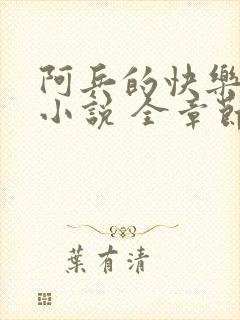 阿兵的快樂
小說 全章節
葉有清